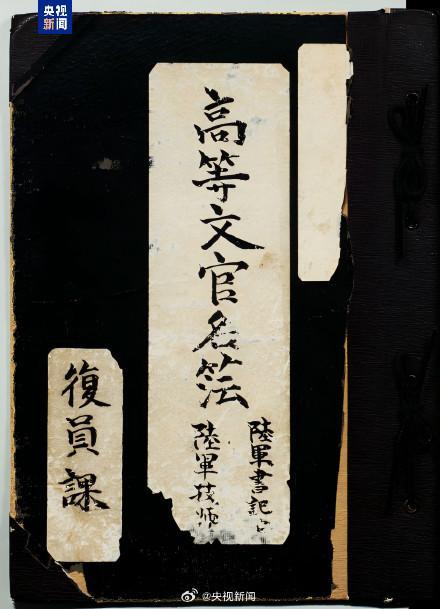 央视
新闻
高等文官名簿
陸軍書記官
陸軍技師
復員課
@央视新闻